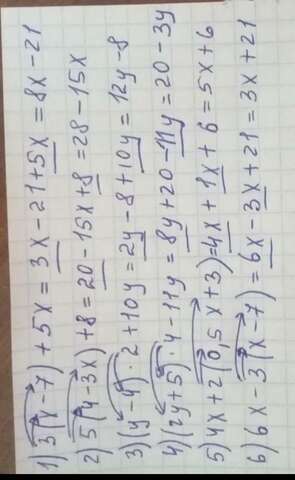 1) 3(x-7)+5x=3x-21+5x=8x-21
2) 5(4-3x)+8=20-15x+8=28-15x
3) (y-4)·2+10y=2y-8+10y=12y-8
4) (2y+5)·4-11y=8y+20-11y=20-3y
5) 4x+2(0,5x+3)=4x+1x+6=5x+6
6) 6x-3(x-7)=6x-3x+21=3x+21